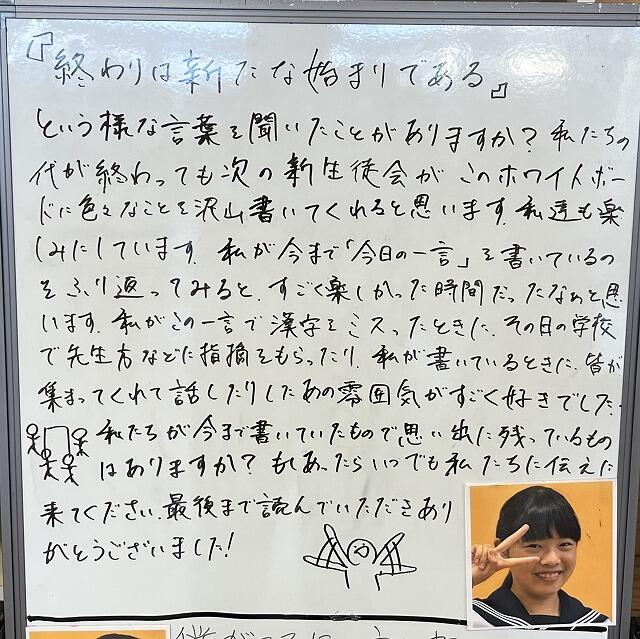 『終わりは新たな始まりである』
という様な言葉を聞いたことがありますか？私たちの
代が終わっても次の新生徒会がこのホワイトボー
ドに色々なことを沢山書いてくれると思います。私達も楽
しみにしています。私が今まで「今日の一言」を書いているの
をふり返ってみると、すごく楽しかった時間だったなぁと思
います。私がこの一言で漢字をミスったときに、その日の学校
で先生方などに指摘をもらったり、私が書いているときに、皆が
集まってくれて話したりしたあの雰囲気がすごく好きでした。
私たちが今まで書いていたもので思い出に残っているもの
はありますか？もしあったらいつでも私たちに伝えに
来てください。最後まで読んでいただきあり
がとうございました！